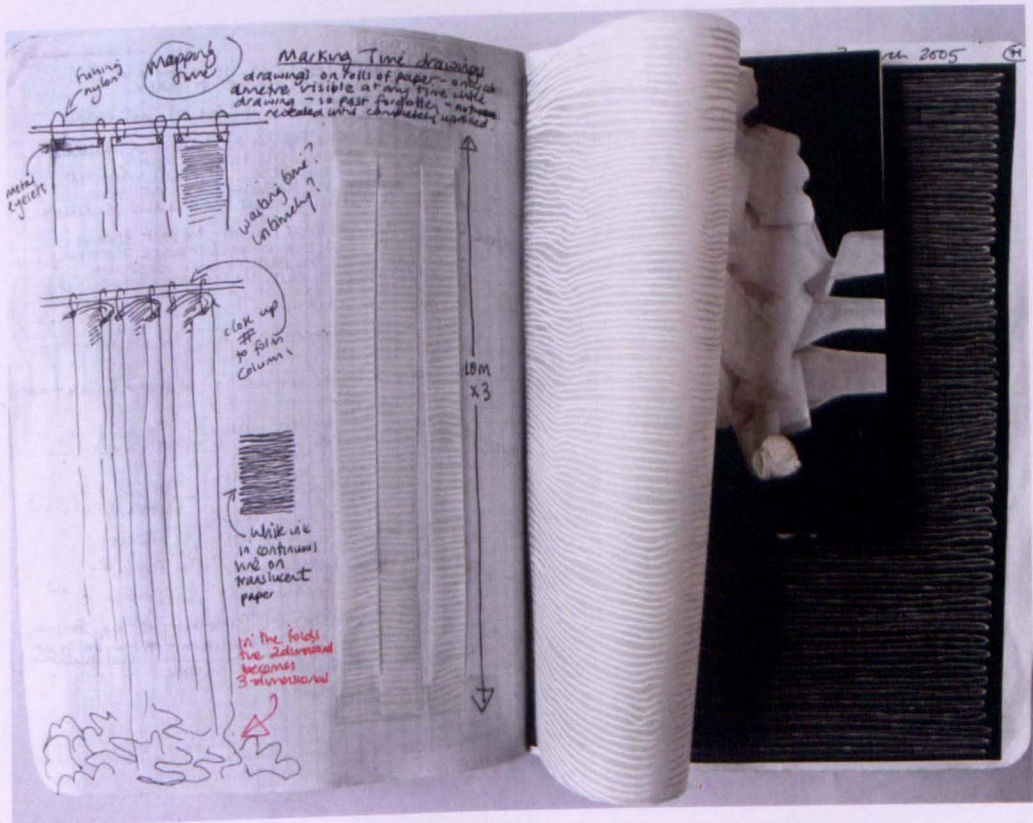 fishing
nylon
mapping
time
Marking Time drawings
drawings on rolls of paper – only
a metre visible at any time while
drawing – so past forgotten –
revealed until completely
metal
eyelets
wasting time?
untimely?
close up
to form
columns
10m
x 3
white ink
in continuous
line on
translucent
paper
In the folds
the 2 dimensional
becomes
3-dimensional
rch 2005